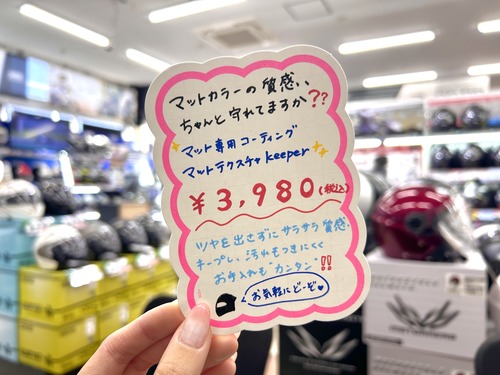 マットカラーの質感、、
ちゃんと守れてますか??
マット専用コーティング
マットテクスチャkeeper
¥3,980(税込)
ツヤを出さずにサラサラ質感
キープし、汚れもつきにくく
お手入れも"カンタン"!!
お気軽にどーぞ♥